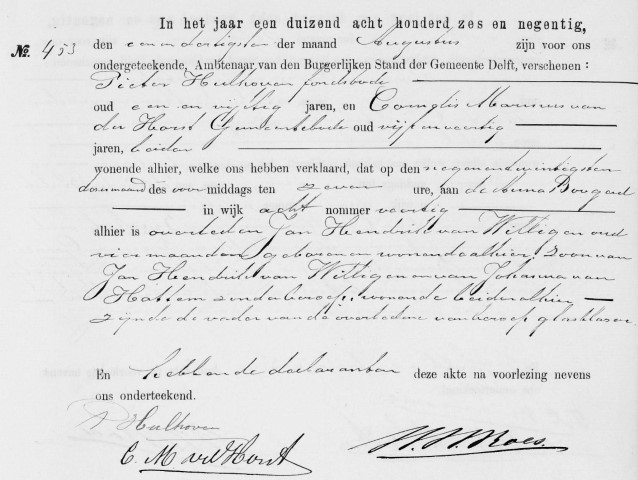 In het jaar een duizend acht honderd zes en negentig,
No. 453 den een en dertigsten der maand Augustus zijn voor ons
ondergeteekende, Ambtenaar van den Burgerlijken Stand der Gemeente Delft, verschenen:
Pieter Hulhoven fondsbode
oud een en vijftig jaren, en Cornelis Marinus van
der Horst Gemeentebode oud vijf en veertig
jaren, beiden
wonende alhier, welke ons hebben verklaard, dat op den negenentwintigsten
dezer maand des voor middags ten zeven ure, aan de Anna Boogerd
in wijk acht nommer veertig
alhier is overleden Jan Hendrik van Willigen oud
vier maanden, geboren en wonende alhier, zoon van
Jan Hendrik van Willigen en van Johanna van
Hattem zonder beroep, wonende beiden alhier
zijnde de vader van de overledene van beroep glasblazer.
En hebben de declaranten deze akte na voorlezing nevens
ons onderteekend.
P Hulhoven
C. M. vd Horst